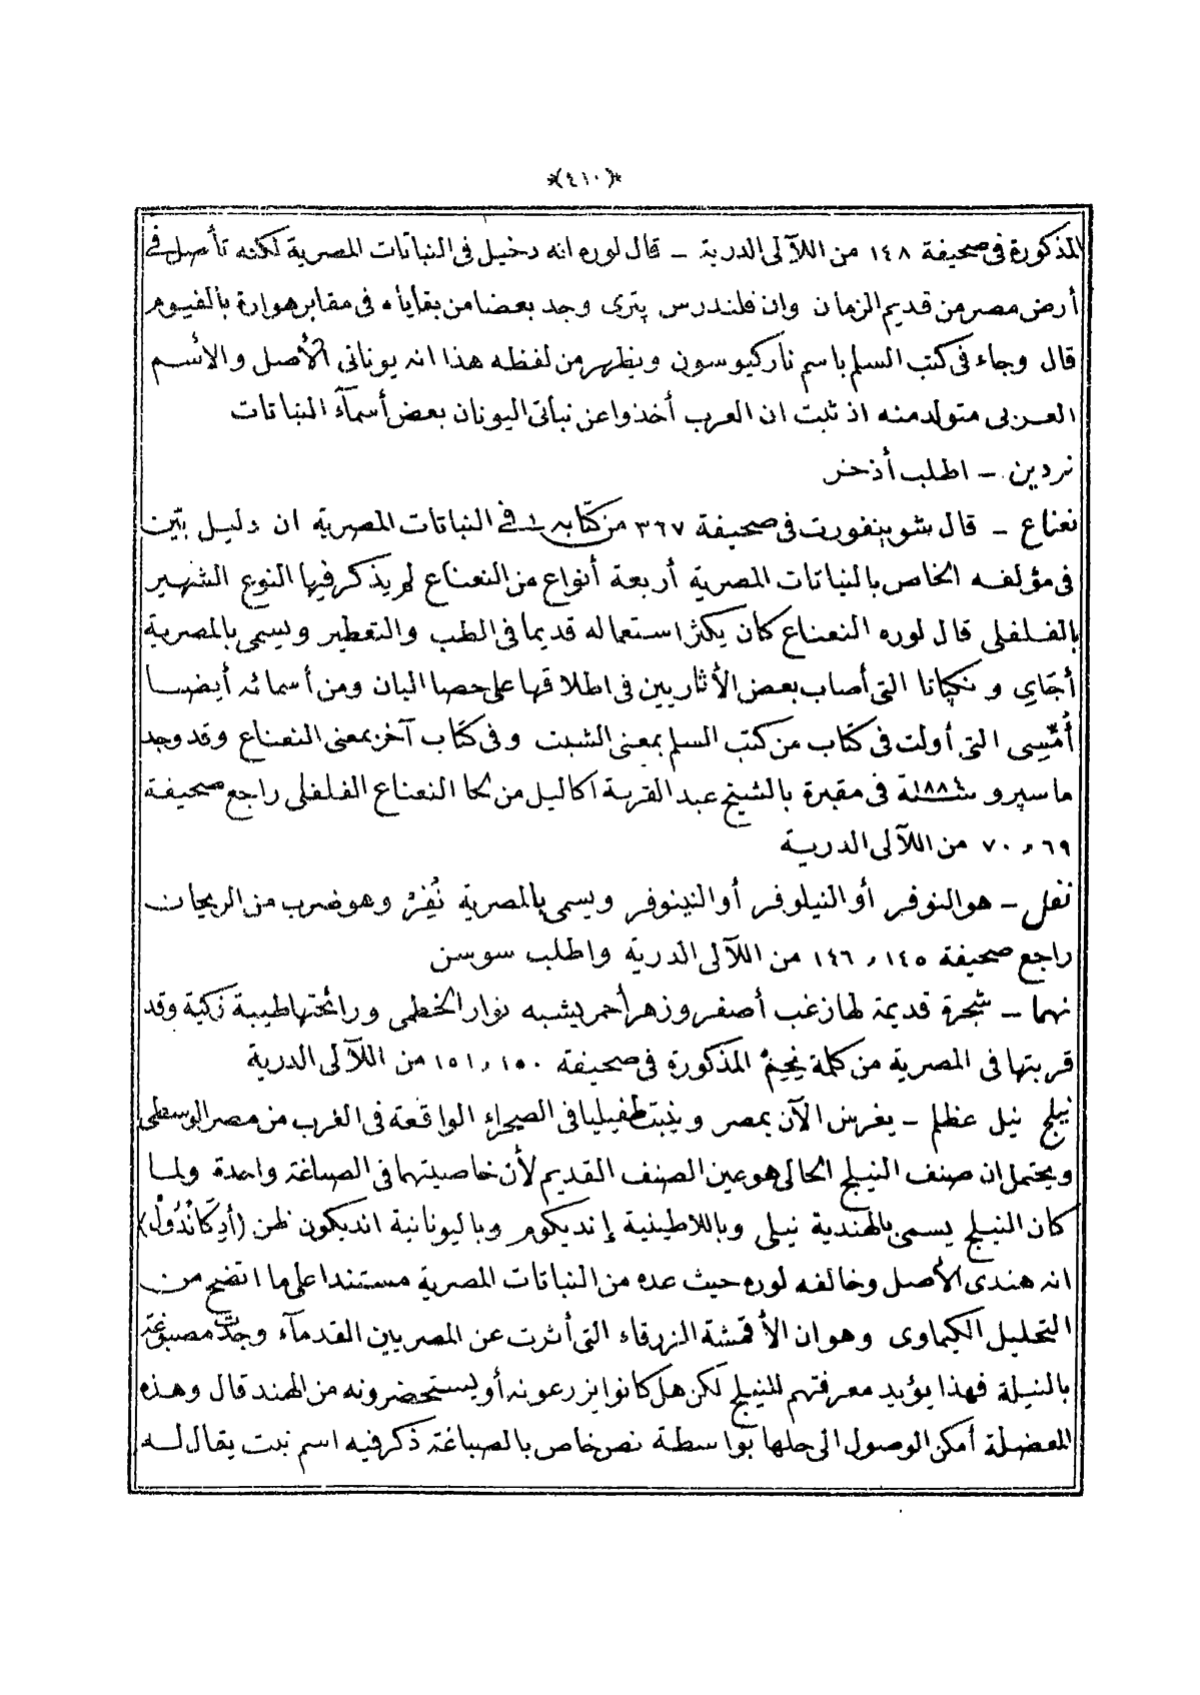 *(٤١٠)*
المذكورة فى صحيفة ١٤٨ من اللآلى الدرية ـ قال لوره انه دخيل فى النباتات المصرية لكنه تأصل فى
أرض مصر من قديم الزمان وان فلندرس پترى وجد بعضا من بقاياه فى مقابر هوارة بالفيوم
قال وجاء فى كتب السلم باسم ناركيوسون ويظهر من لفظه هذا انه يونانى الأصل والاسم
العربى متولد منه اذ ثبت ان العرب أخذوا عن نباتى اليونان بعض أسمآء النباتات
نردين ـ اطلب أذخر
نعناع ـ قال شوينفورت فى صحيفة ٣٦٧ من كتابه فى النباتات المصرية ان دليل بيّن
فى مؤلفه الخاص بالنباتات المصرية أربعة أنواع من النعناع لم يذكر فيها النوع الشهير
بالفلفلى قال لوره النعناع كان يكثر استعماله قديما فى الطب والتعطير ويسمى بالمصرية
أجَاى و نكپاتا التى أصاب بعض الأثاريين فى اطلاقها على حصا البان ومن أسمائه أيضا
أُمّسِى التى أولت فى كتاب من كتب السلم بمعنى الشبت وفى كتاب آخر بمعنى النعناع وقد وجد
ماسپرو سنة ١٨٨٤ فى مقبرة بالشيخ عبد القرنة اكاليل من لحا النعناع الفلفلى راجع صحيفة
٦٩ , ٧٠ من اللآلى الدرية
نفل ـ هو النوفر أو النيلوفر أو النينوفر ويسمى بالمصرية نُفِرْ وهو ضرب من الريحان
راجع صحيفة ١٤٥ , ١٤٦ من اللآلى الدرية واطلب سوسن
نهما ـ شجرة قديمة لها زغب أصفر وزهر أحمر يشبه نوار الخطمى ورائحتها طيبة زكية وقد
قربتها فى المصرية من كلمة نِحِيمْ المذكورة فى صحيفة ١٥٠ , ١٥١ من اللآلى الدرية
نيلج نيل عظلم ـ يغرس الآن بمصر وينبت طفيليا فى الصحراء الواقعة فى الغرب من مصر الوسطى
ويحتمل ان صنف النيلج الحالى هو عين الصنف القديم لأن خاصيتهما فى الصباغة واحدة ولما
كان النيلج يسمى بالهندية نيلى وباللاطينية إنديكوم وباليونانية انديكون ظن (أدِكَانْدُولْ)
انه هندى الأصل وخالفه لوره حيث عده من النباتات المصرية مستندا على ما اتضح من
التحليل الكيماوى وهو ان الأقمشة الزرقاء التى أثرت عن المصريين القدمآء وجدت مصبوغة
بالنيلة فهذا يؤيد معرفتهم للنيلج لكن هل كانوا يزرعونه أو يستحضرونه من الهند قال وهذه
المعضلة أمكن الوصول الى حلها بواسطة نص خاص بالصباغة ذكر فيه اسم نبت يقال له